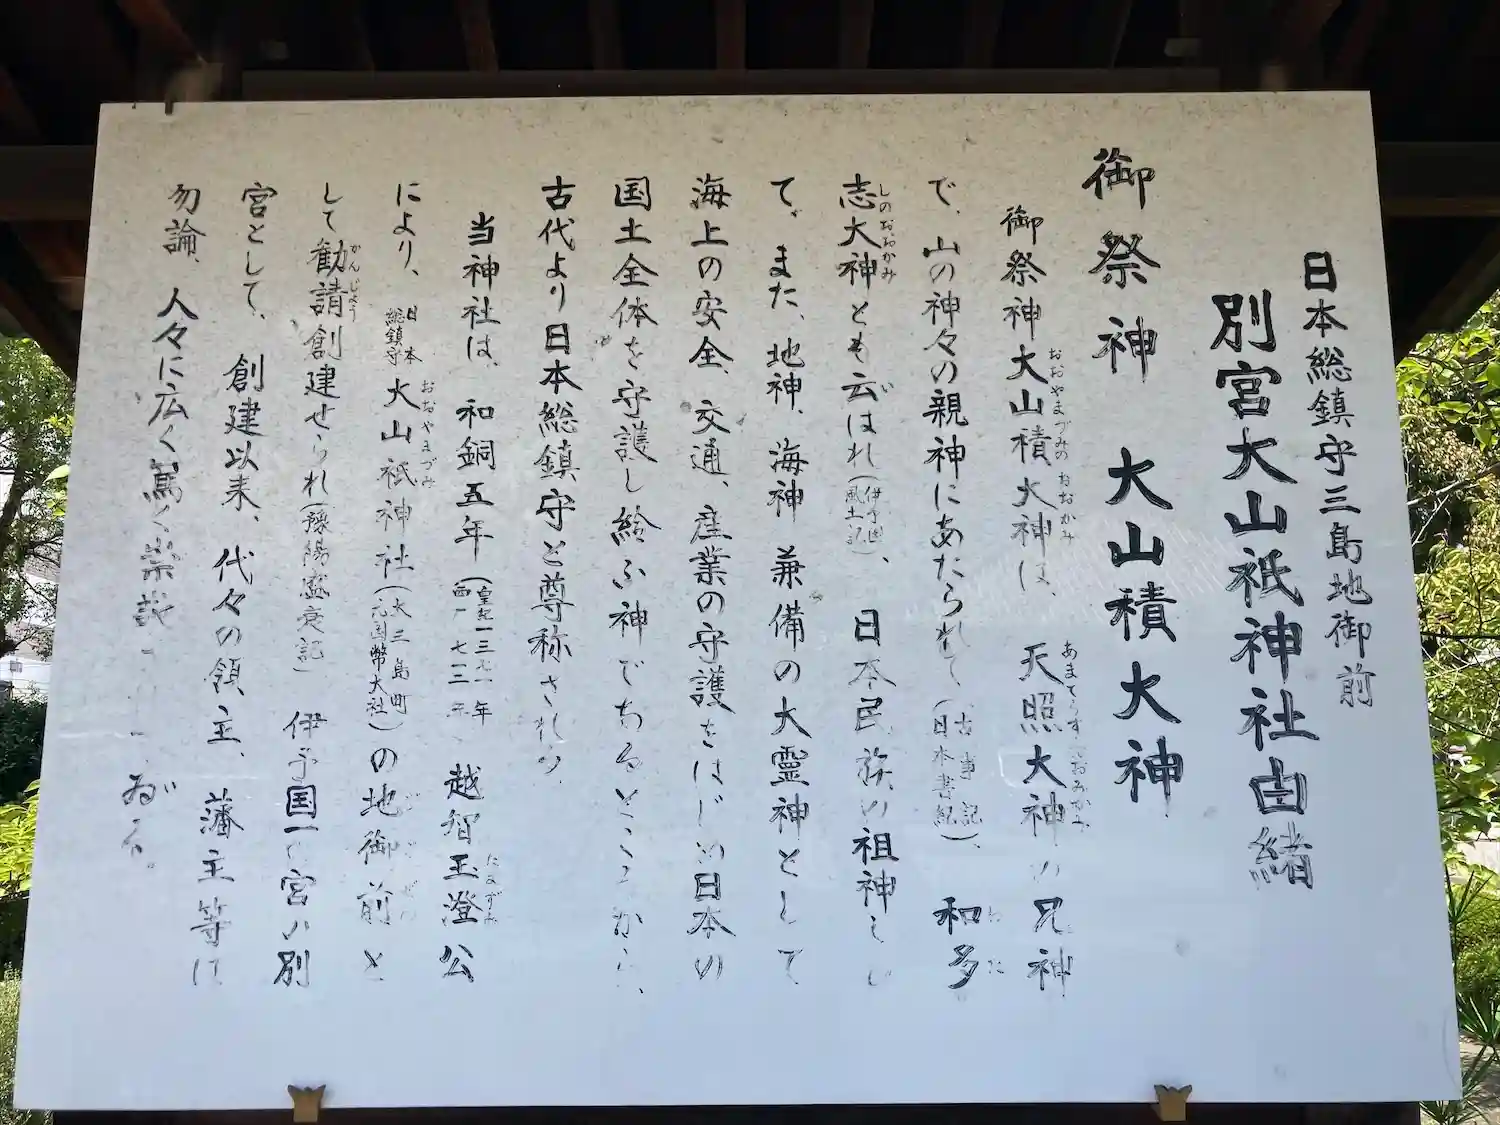 日本総鎮守三島地御前
別宮大山祇神社由緒
御祭神　大山積大神
御祭神大山積大神は、天照大神の兄神
おおやまづみのおおかみ　あまてらすおおみかみ
で、山の神々の親神にあたられて（古事記日本書紀）、和多
わた
志大神とも云はれ（伊予国風土記）、日本民族の祖神とし
しのおおかみ
て、また、地神、海神兼備の大霊神として
海上の安全、交通、産業の守護をはじめ日本の
国土全体を守護し給ふ神であるところから、
古代より日本総鎮守と尊称され
当神社は、和銅五年（皇紀一三七一年西　七一二年　越智玉澄公
たまずみ
により、日本総鎮守大山祇神社（大三島町元国幣大社）の地御前と
おおやまづみ
して勧請創建せられ（豫陽盛衰記）伊予国一の宮の別
かんじょう
宮として、創建以来、代々の領主、藩主等は
勿論、人々に広く篤く崇